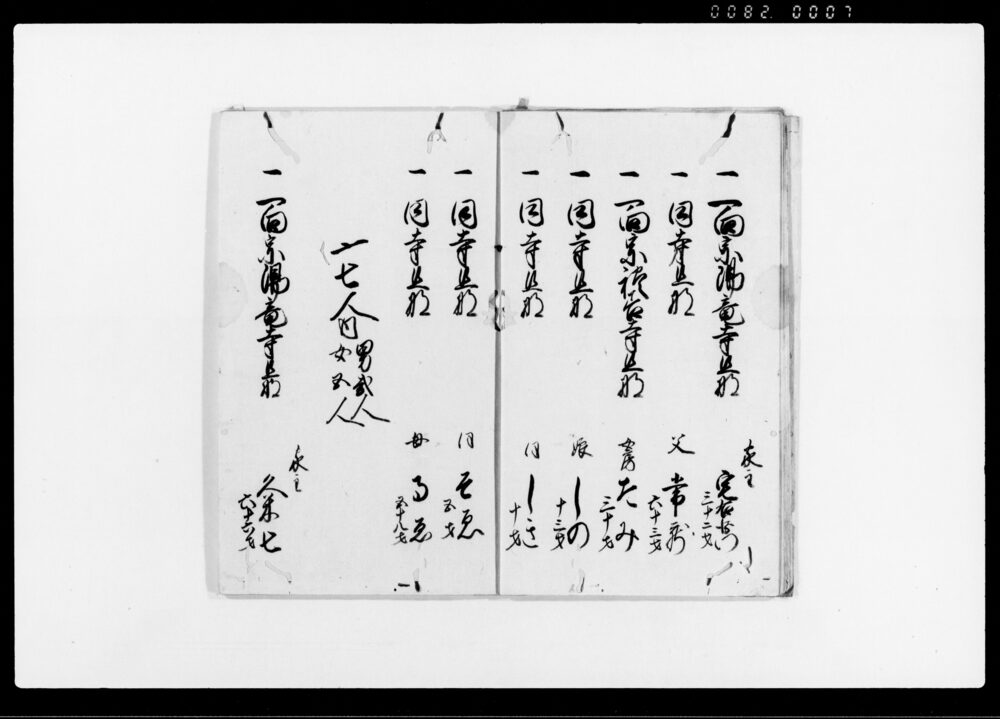 0082 0007
一 一向宗陽竜寺旦那 家主 定右衛門 三十二才
一 同寺旦那 父 常蔵 六十三才
一 一向宗 寺旦那 女房 たみ 三十才
一 同寺旦那 娘 しの 十三才
一 同寺旦那 同 十才
一 同寺旦那 同 五才
一 同寺旦那 母 五十八才
〆七人内 男弐人 女五人
一 一向宗陽竜寺旦那 家主 久米七 六十六才